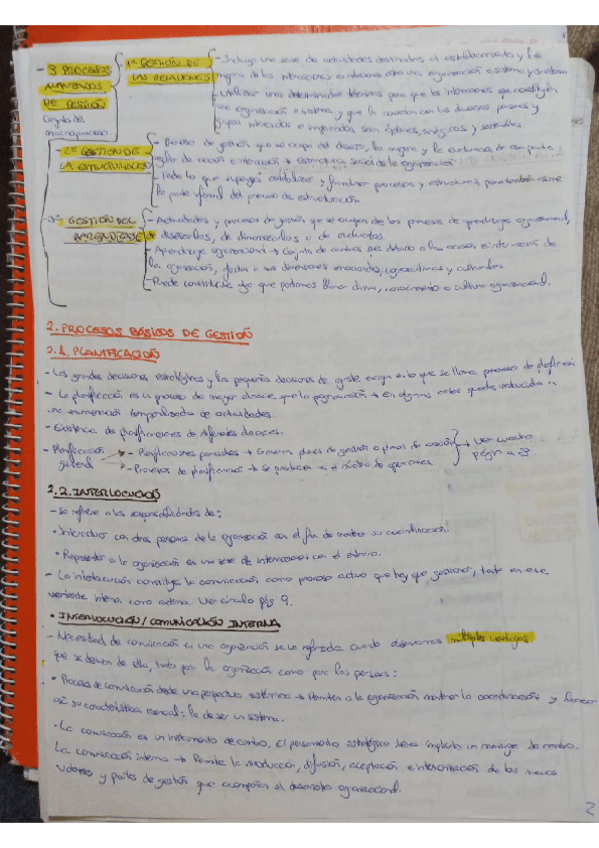 - 3 PROCESOS AVANZADOS DE GESTIÓN
Conjunto de macroprocesos
1º GESTIÓN DE LAS RELACIONES
- Incluye una serie de actividades destinadas al establecimiento y la
mejora de las interacciones o relaciones entre una organización o sistema y su entorno
- Utilizar una determinadas técnicas para que las interacciones que constituyen
una organización o sistema, y que la conectan con las diversas personas y
grupos interesados o implicados sean óptimas, sinérgicas y sostenibles.
- 2º GESTIÓN DE LA ESTRUCTURACIÓN
- Proceso de gestión que se ocupa del diseño, la mejora y
reglas de acción e interacción → estructura social de la organización
- Todo lo que suponga estabilizar y formalizar procesos y estructuras
la parte formal del proceso de estructuración.
- 3º GESTIÓN DEL APRENDIZAJE
- Actividades y procesos de gestión que se encargan de los procesos de aprendizaje organizacional,
de diseñarlos, de dinamizarlos o de evaluarlos.
- Aprendizaje organizacional → Conjunto de cambios que, debido a las acciones e interacciones de
la organización, afectan a sus dimensiones emocionales, cognoscitivas y culturales.
- Puede constituirse algo que podríamos llamar clima, conocimiento o cultura organizacional.
2. PROCESOS BÁSICOS DE GESTIÓN
2.1. PLANIFICACIÓN
- Las grandes decisiones estratégicas y las pequeñas decisiones de gestión exigen lo que se llama procesos de planificación
- La planificación es un proceso de mayor alcance que la programación → En algunos casos queda reducida a
una enumeración temporalizada de actividades.
- Existencia de planificaciones de diferentes alcances.
- Planificación general
- Planificaciones parciales → Generan planes de gestión o planes de acción
- Procesos de planificación → Se producen en el núcleo de operaciones
→ Ver cuadro página 8
2.2. INTERLOCUCIÓN
- Se refiere a las responsabilidades de:
• Interactuar con otras personas de la organización con el fin de mantener su coordinación.
• Representar a la organización en una serie de interacciones con el entorno.
- La interlocución constituye la comunicación como proceso activo que hay que gestionar, tanto en su
vertiente interna como externa. Ver círculo pág 9.
• INTERLOCUCIÓN / COMUNICACIÓN INTERNA
- Necesidad de comunicación en una organización se ve reforzada cuando observamos múltiples ventajas
que se derivan de ella, tanto para la organización como para las personas:
• Proceso de comunicación desde una perspectiva sistémica → Permiten a la organización mantener la coordinación y
así su característica esencial: la de ser un sistema.
- La comunicación es un instrumento de cambio. El pensamiento estratégico lleva implícito un mensaje de cambio.
La comunicación interna → Permite la introducción, difusión, aceptación e interiorización de los nuevos
valores y pautas de gestión que acompañan al desarrollo organizacional.
2